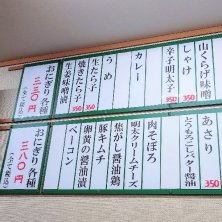 山くらげ味噌
しゃけ
350
辛子明太子
350
カレー
うめ
生たら子
350
焼きたら子
350
生姜味噌漬
おにぎり各種
三三〇円
あさり
とうもろこしバター醤油
肉そぼろ
明太クリームチーズ
焦がし醤油鶏
豚キムチ
卵黄の醤油漬
ベーコン
おにぎり各種
三八〇円